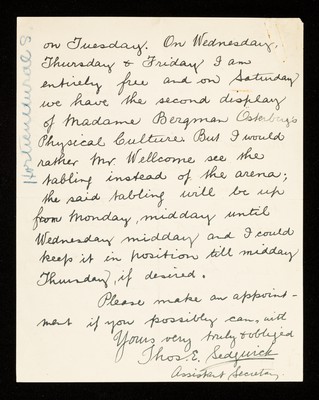 on Tuesday. On Wednesday,
Thursday & Friday I am
entirely free and on Saturday
we have the second display
of Madame Bergman Osterberg's
Physical Culture. But I would
rather Mr. Wellcome see the
tabling instead of the arena;
the said tabling will be up
from Monday, midday until
Wednesday midday and I could
keep it in position till midday
Thursday, if desired.
Please make an appoint-
ment if you possibly can, with
Yours very truly & obliged
Thos. E. Sedgwick
Assistant Secretary